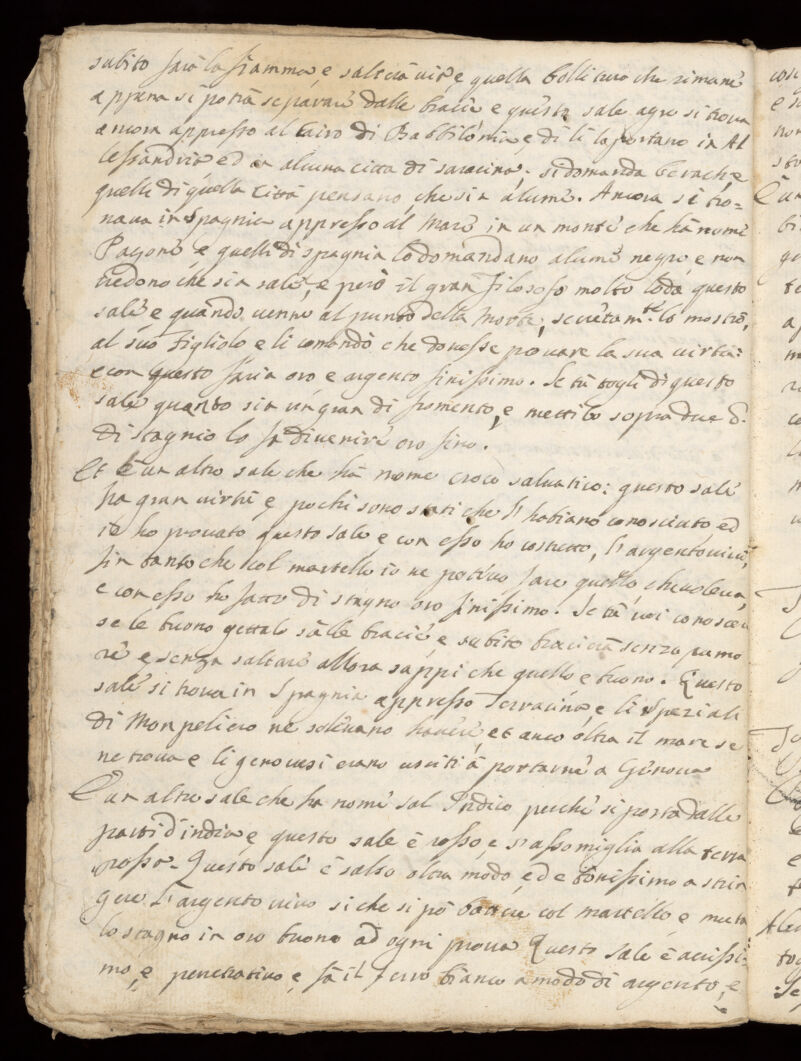 subito farà la fiamma, e salterà via, e quella bollitura che rimane
appena si potrà separare dalle bracie e questo sale agro si trova
ancora appresso al Cairo di Babbilonia, e di li lo portano in Al
lessandria ed in alcuna città di saracina; si domanda berach, e
quelli di quella Città pensano che sia alume. Ancora si tro=
vava in Spagnia appresso al Mare in un monte che hà nome
Pagone, e quelli di spagnia lo domandano alume negro, e non
credono che sia sale, e però il gran Filosofo molto loda questo
sale e quando venne al punto della Morte, secretam.te lo mostrò,
al suo Figliolo e li comandò che dovesse provare la sua virtù:
e con questo faria oro e argento finissimo. Se tù togli di questo
sale quanto sia un gran di formento, e mettilo sopra due
di stagnio lo fà divenire oro fino.
Et è un altro sale che hà nome croco salvatico: questo sale
ha gran virtù e pochi sono stati che l'habiano conosciuto ed
io ho provato questo sale e con esso ho costretto, l'argento vivo,
fin tanto che col martello io ne potevo fare quello, che voleva,
e con esso ho fatto di stagno oro finissimo. Se tù voi conoscer
se le buono gettalo sulle bracie, e subito bracierà senza rumo
re e senza saltare allora sappi che quello è buono. Questo
sale si trova in Spagnia appresso Terracina, e li speziali
di Monpeliero ne solevano havere, et anco oltra il mare se
ne trova e li genovesi erano usciti à portarne a Genova
È un altro sale che ha nome sal Indico perche si porta dalle
parti d'india e questo sale è rosso, e s'assomiglia alla terra
rossa. Questo sale è salso oltra modo, ed è bonissimo a strin
gere l'argento vivo si che si pò battere col martello, e muta
lo stagno in oro buono ad ogni prova Questo sale è acutissi=
mo, e penetrativo e, fà il ferro bianco a modo di argento, e